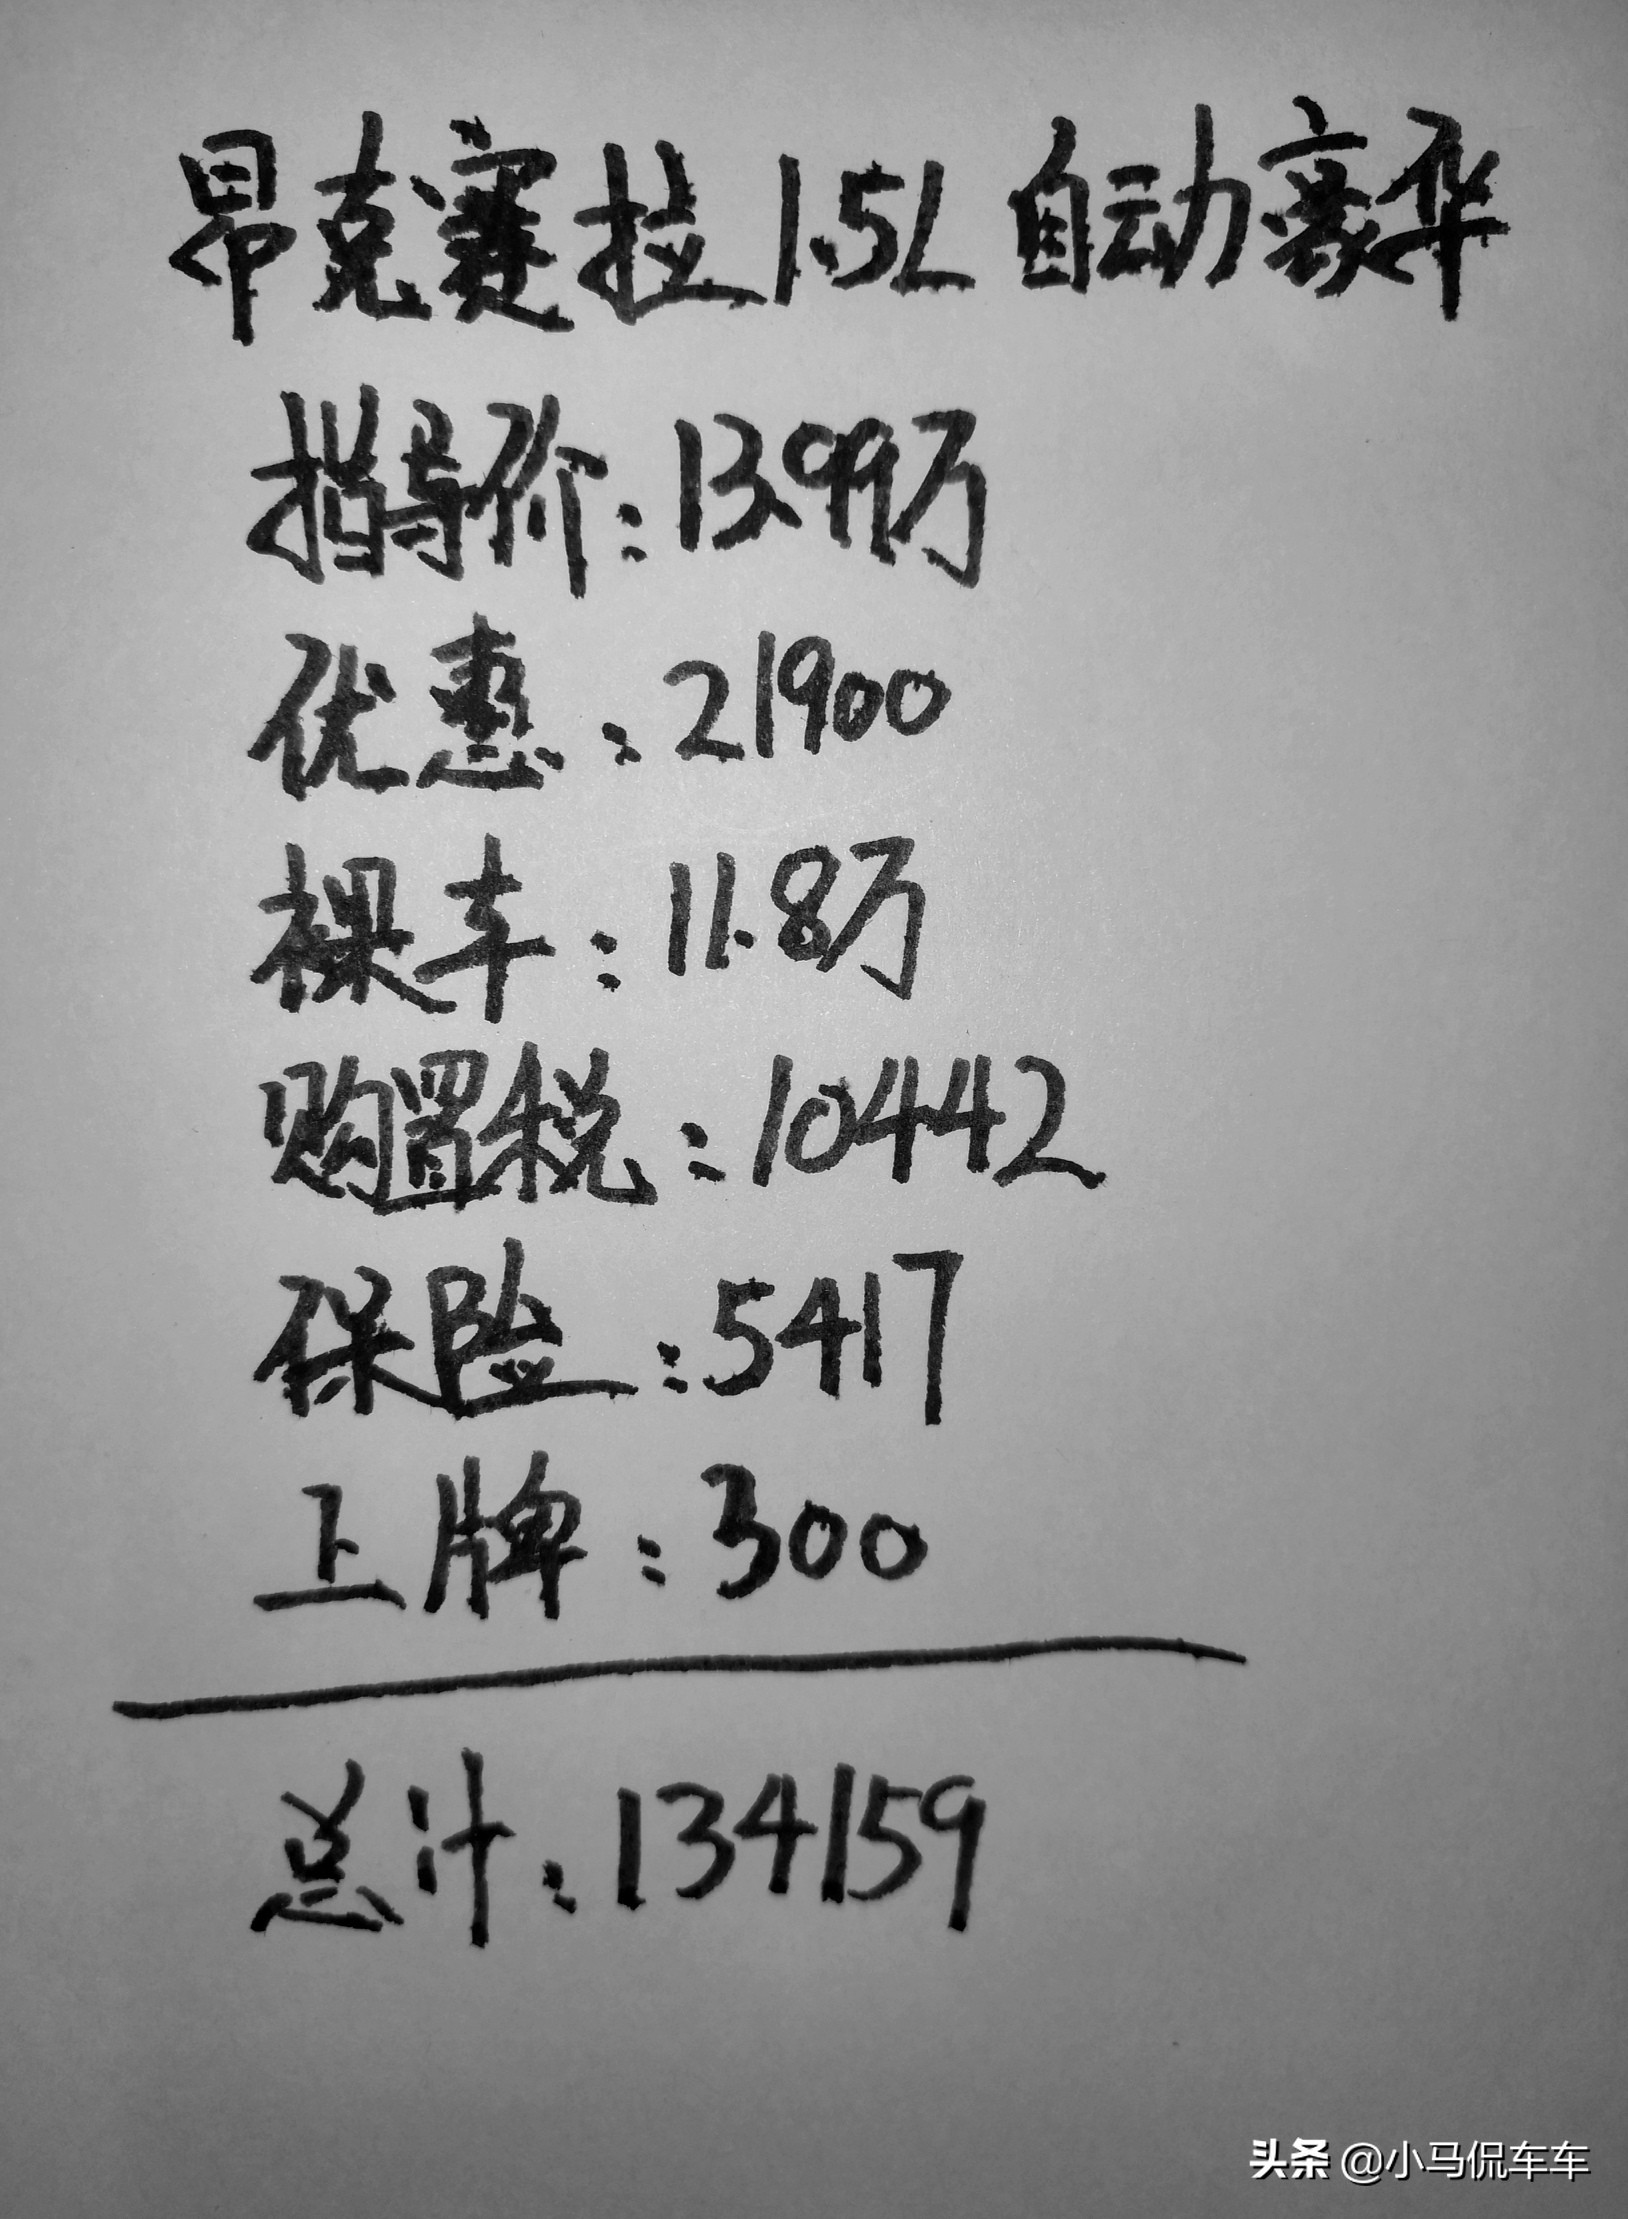 昂克赛拉1.5L 自动豪华
指导价:13.99万
优惠:21900
裸车:11.8万
购置税:10442
保险:5417
上牌:300
总计:134159
头条 @小马侃车车